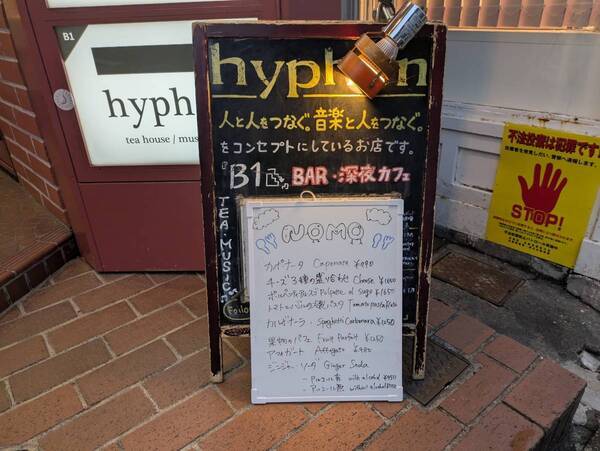 B1
hyph
tea house / mus
hyphen
人と人をつなぐ。音楽と人をつなぐ。
をコンセプトにしているお店です。
B1 BAR・深夜カフェ
TEA.MUSIC
NOMO
カポナータ Caponata
チーズ3種の盛り合わせ Cheese
トマトとバジルの パスタ Tomato pasta
カルボナーラ Spaghetti Carbonara ¥1,050
果物のパフェ Fruit Parfait ¥1,050
アフォガート Affogato
ジンジャーソーダ Ginger Soda
アルコール有 with alcohol
アルコール無 without alcohol
不法投棄は犯罪です
STOP!